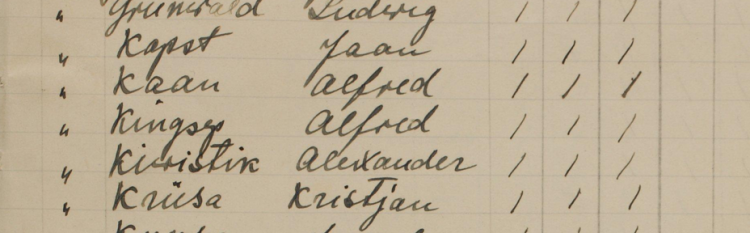 " Grünwald Ludwig / / /
" Kapst Jaan / / /
" Kaan Alfred / / /
" Kingsep Alfred / / /
" Alexander / / /
" Krüsa Kristjan / / /